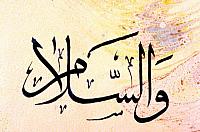 وَالسَّلَام